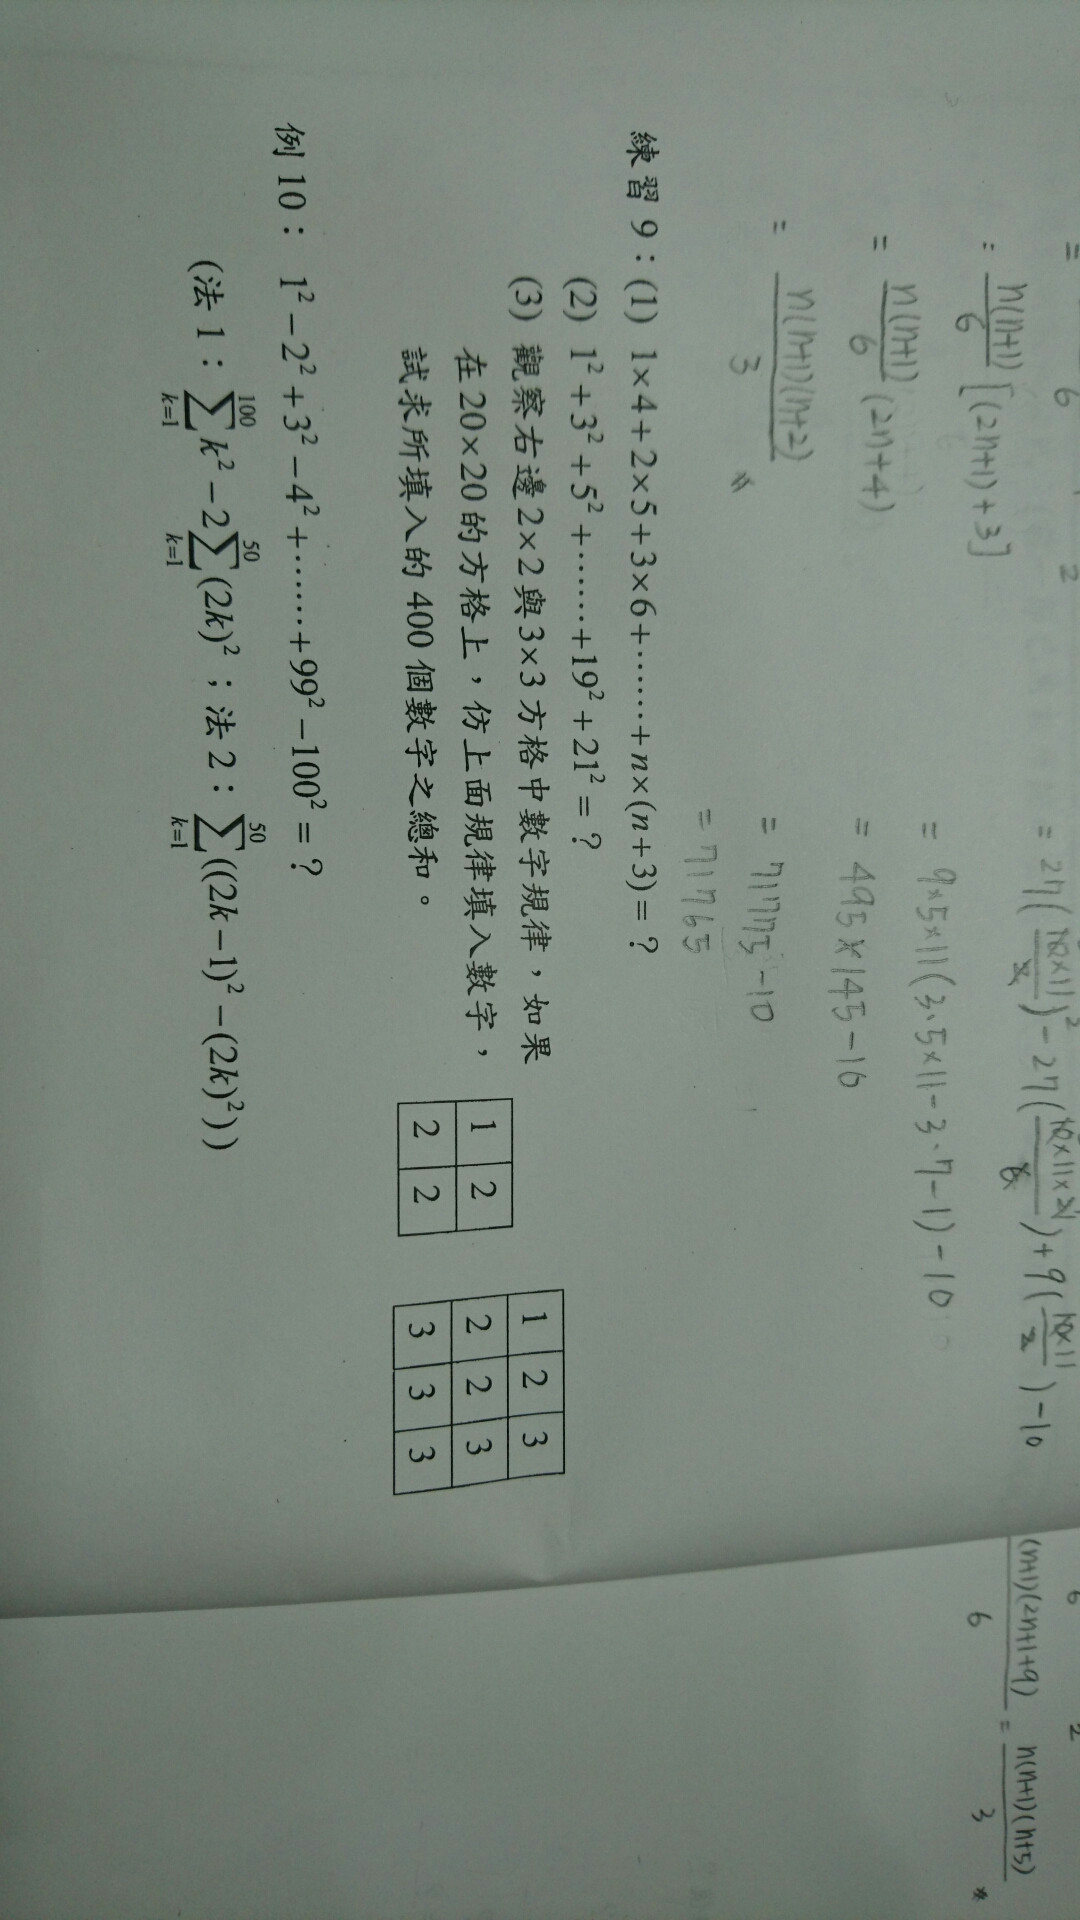 =
6
2
= n(n+1)/6 [(2n+1)+3]
= n(n+1)/6 (2n+4)
= n(n+1)(n+2)/3 *
= 27(10×11/2)² - 27(10×11×21/6) + 9(10×11/2) - 10
= 9×5×11(3·5×11-3·7-1)-10
= 495×145-10
= 71775-10
= 71765
6
2
(n+1)(2n+1+9)/6 = n(n+1)(n+5)/3 *
練習9:(1) 1×4+2×5+3×6+……+n×(n+3)=?
(2) 1²+3²+5²+……+19²+21²=?
(3) 觀察右邊2×2與3×3方格中數字規律,如果
在20×20的方格上,仿上面規律填入數字,
試求所填入的400個數字之總和。
1 2
2 2
1 2 3
2 2 3
3 3 3
例10: 1²-2²+3²-4²+……+99²-100²=?
(法1:∑_{k=1}^{100} k²-2∑_{k=1}^{50}(2k)²;法2:∑_{k=1}^{50}((2k-1)²-(2k)²))